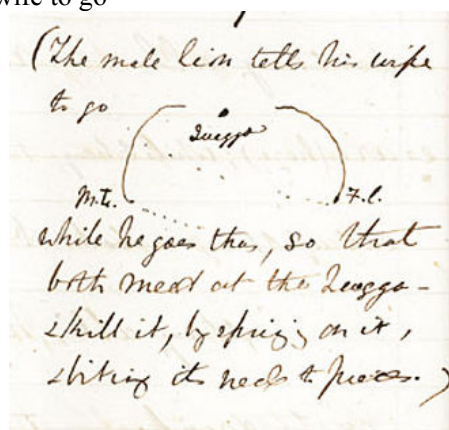 wife to go
(The male lion tells his wife
to go
Quagga
M.L. F.L.
while he goes thus, so that
both meet at the Quagga –
& kill it, by springing on it,
& biting its neck to pieces.)